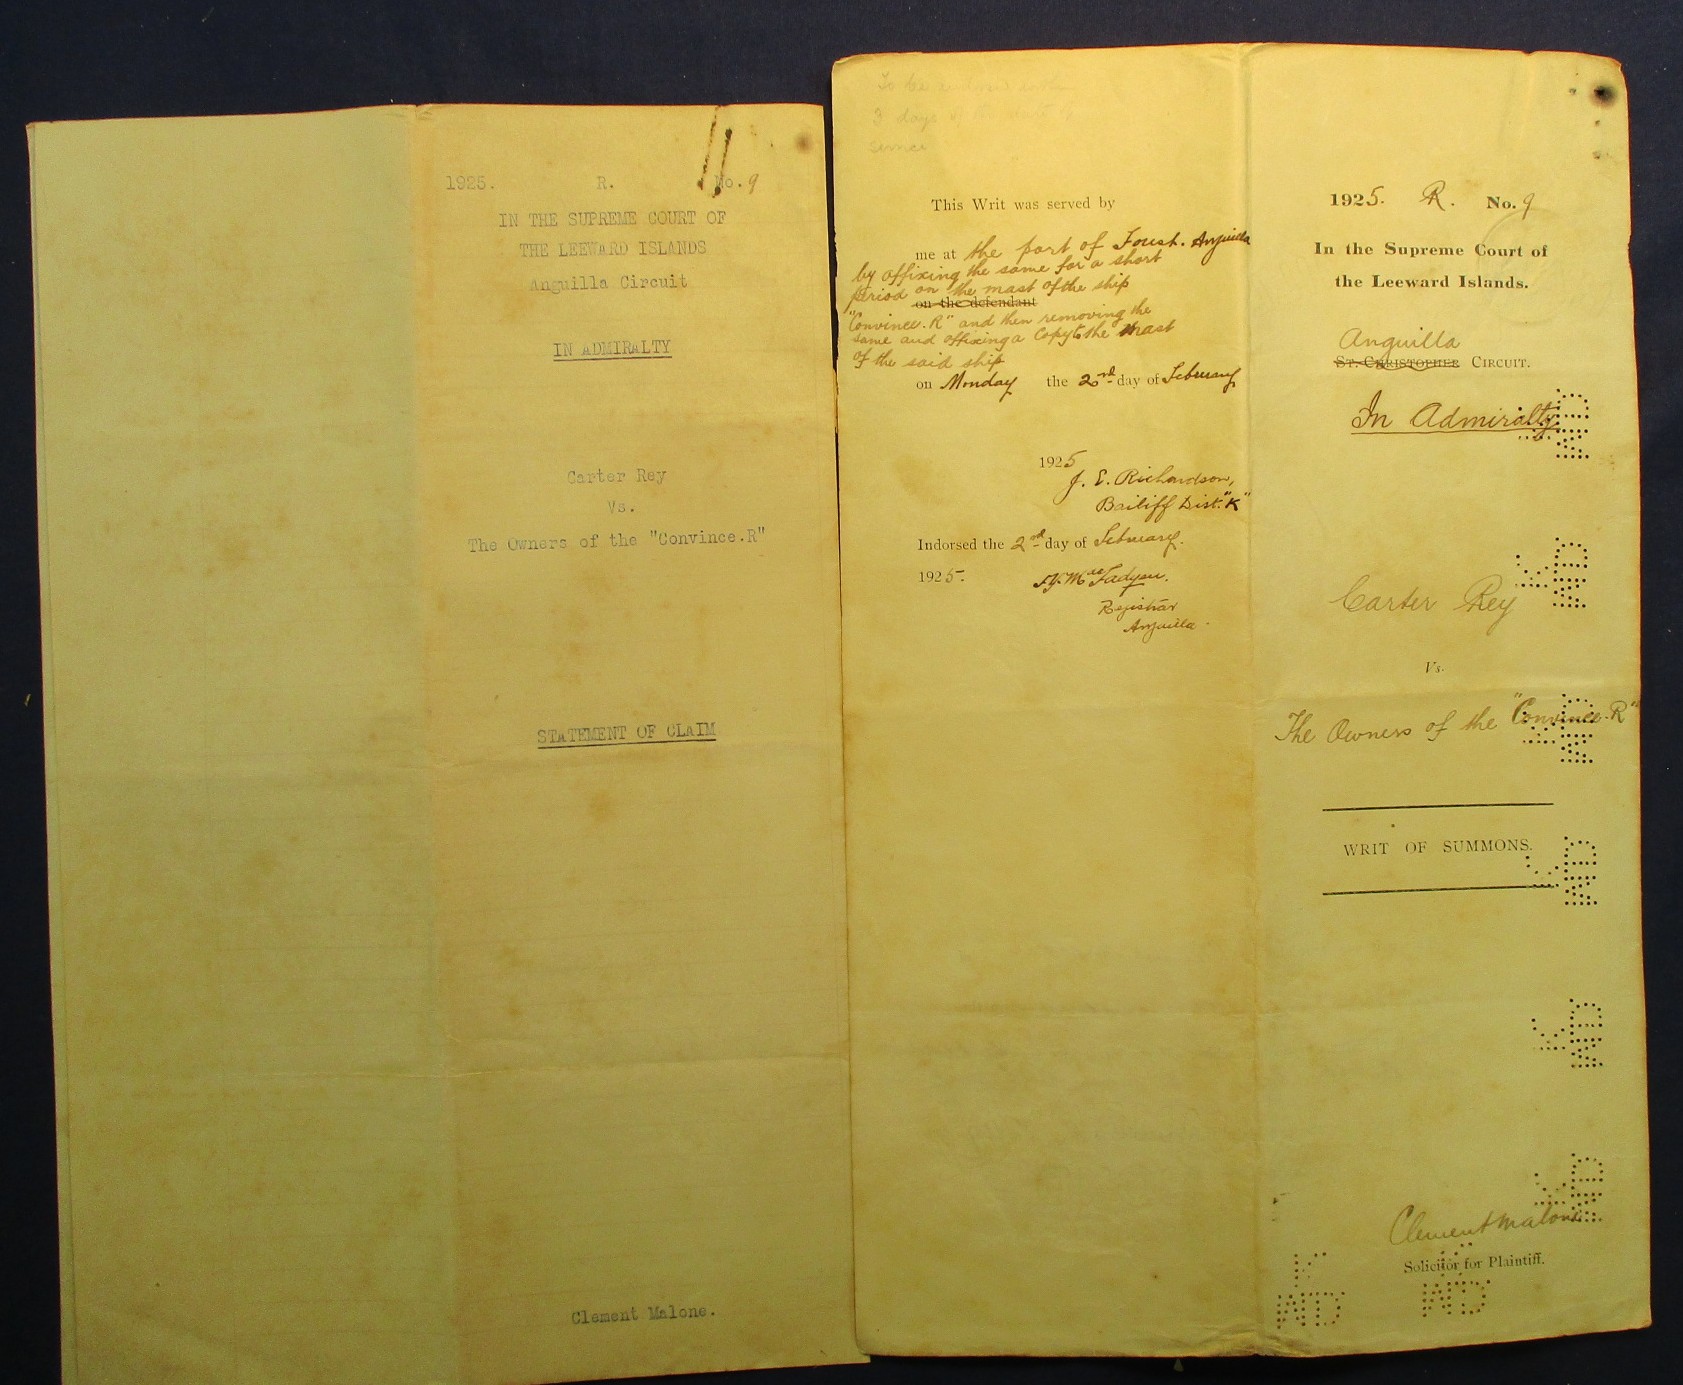 1925. R. No. 9
IN THE SUPREME COURT OF
THE LEEWARD ISLANDS
Anguilla Circuit
IN ADMIRALTY
Carter Rey
Vs.
The Owners of the "Convince.R"
STATEMENT OF CLAIM
Clement Malone.
To be
3 days of
service
This Writ was served by
me at the port of Anguilla
by affixing the same for a short
period on the mast of the ship
on the defendant
"Convince.R" and then removing the
same and affixing a Copy to the mast
of the said ship
on Monday the 2nd day of February
1925
J. E. Richardson,
Bailiff Dist. "K"
Indorsed the 2nd day of February.
1925.
McFadyen.
Registrar
Anguilla.
1925. R. No. 9
In the Supreme Court of
the Leeward Islands.
Anguilla
ST. CHRISTOPHER CIRCUIT.
In Admiralty
Carter Rey
Vs.
The Owners of the "Convince.R"
WRIT OF SUMMONS.
Clement Malone
Solicitor for Plaintiff.